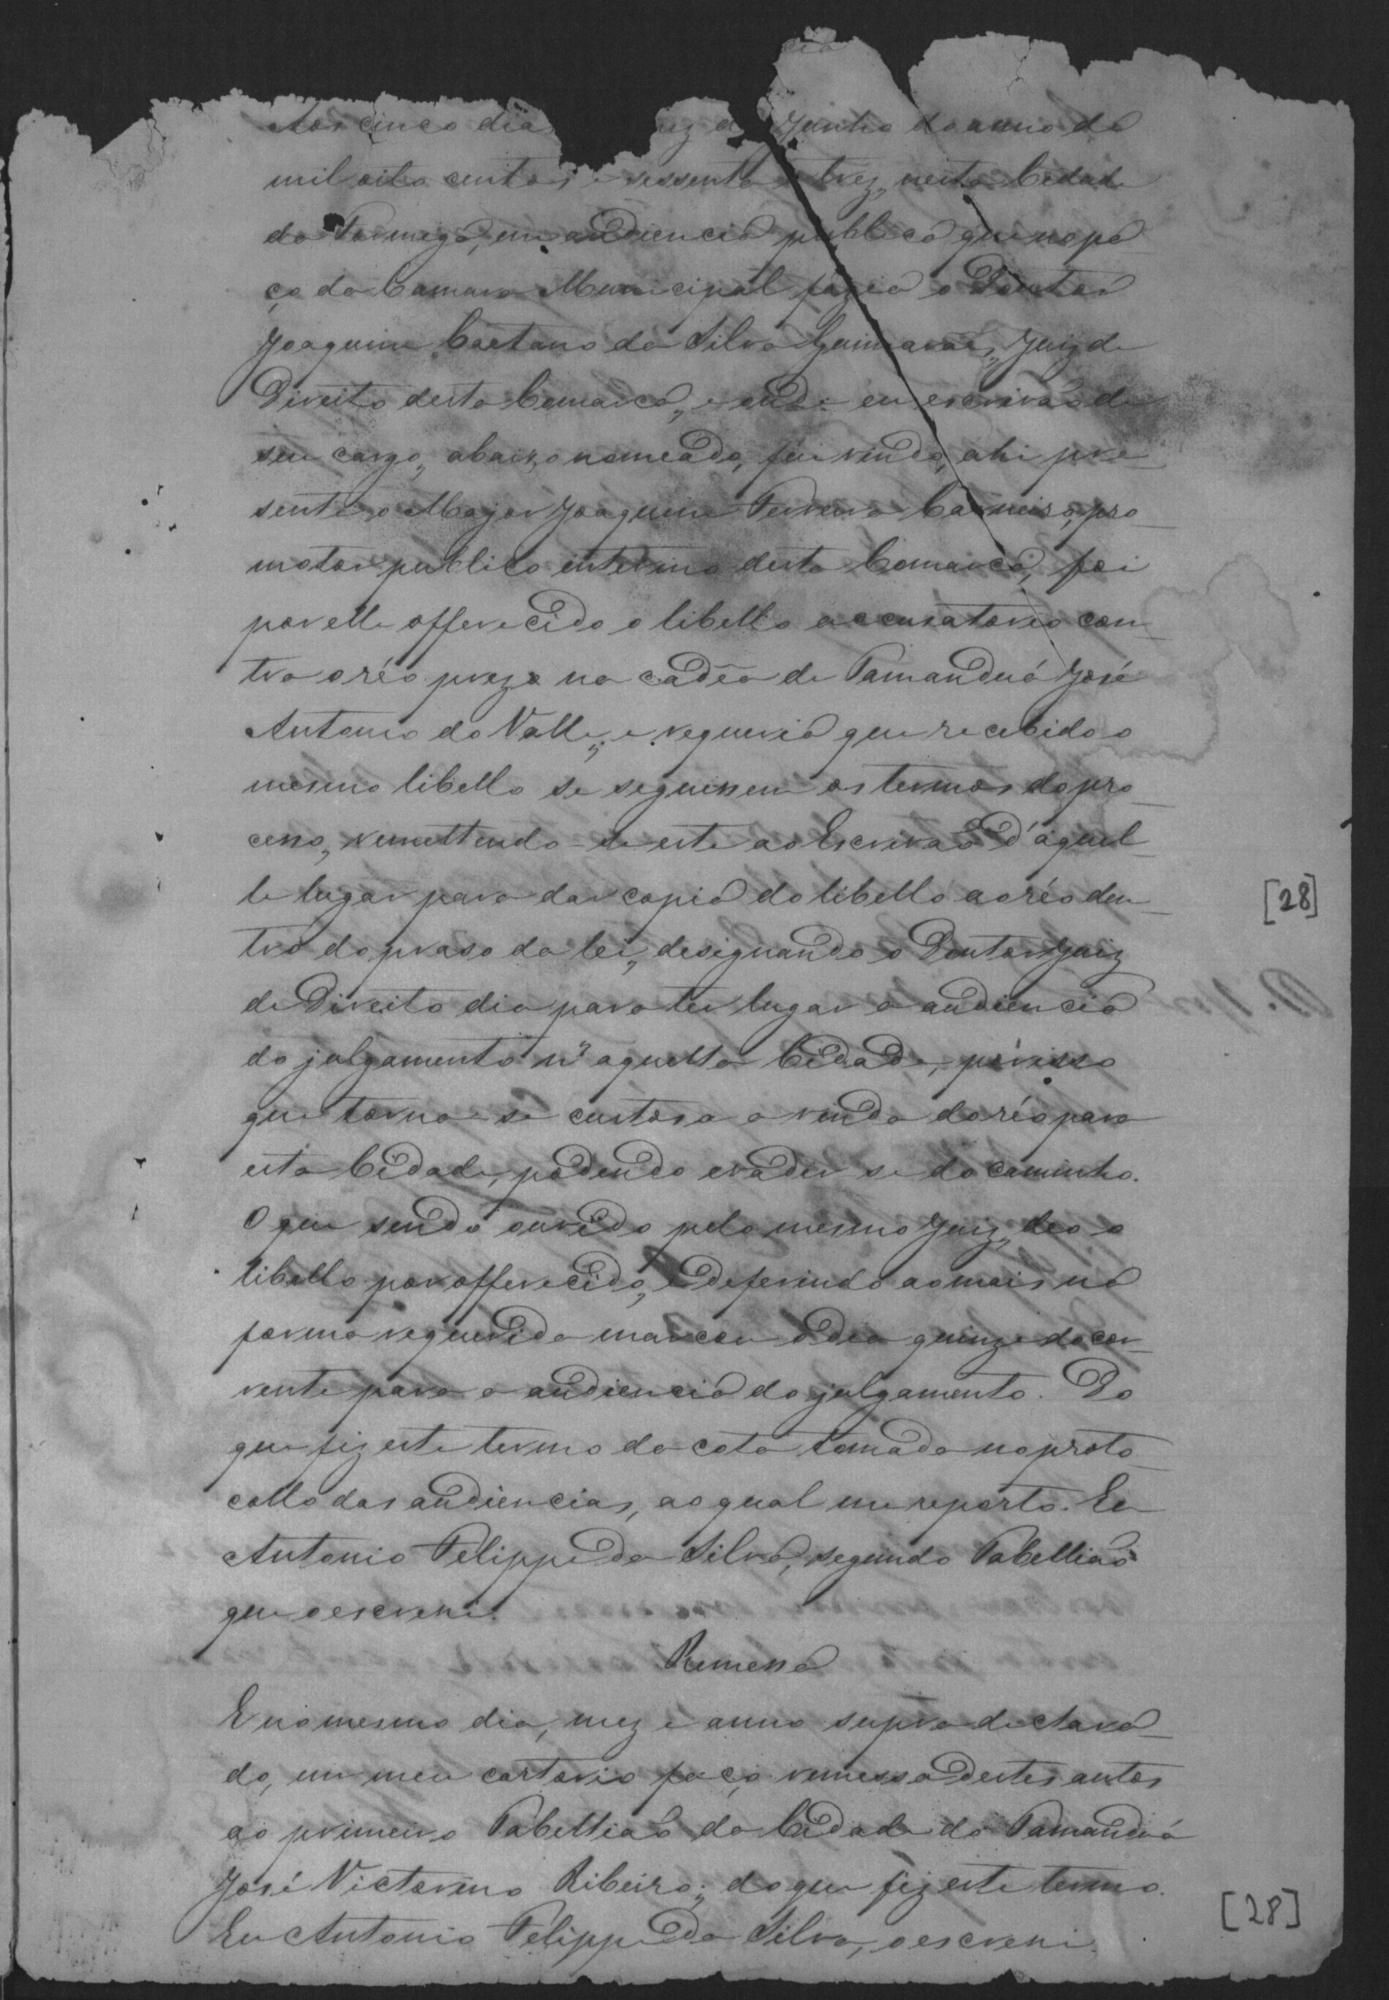 Aos cinco dias mez de Junho do anno de
mil oito centos e sessenta e trez, nesta Cidade
da Formiga, em audiencia publica que no pa
ço da Camara Municipal fazia o Doutor
Joaquim Caetano da Silva Guimarães, Juiz de
Direito desta Comarca, e onde eu escrivão de
seu cargo, abaixo nomeado, fui vindo, ahi pre-
sente o Major Joaquim Ferreira Carneiro, pro-
motor publico interino desta Comarca, foi
por elle offerecido o libello accusatorio con-
tra o réo prezo na cadêa de Tamanduá José
Antonio do Valle; e requeria que recebido o
mesmo libello se seguissem os termos do pro-
cesso, remettendo-se este ao Escrivão d'aquel-
le lugar para dar copia do libello ao réo den-
tro do praso da lei, designando o Doutor Juiz
de Direito dia para ter lugar a audiencia
do julgamento n'aquella Cidade, por isso
que torna-se custosa a vinda do réo para
esta Cidade, podendo evadir se do caminho.
O que sendo ouvido pelo mesmo Juiz, deo o
libello por offerecido, e deferindo ao mais na
forma requerida marcou o dia quinze do cor-
rente para a audiencia do julgamento. Do
que fiz este termo da cota tomada no proto-
collo das audiencias, ao qual me reporto. Eu
Antonio Felippe da Silva, segundo Tabellião
que o escrevi.
Remessa
E no mesmo dia, mez e anno supra declara-
do, em meu cartorio faço remessa destes autos
ao primeiro Tabellião da Cidade do Tamanduá
José Victorino Ribeiro; do que fiz este termo.
Eu Antonio Felippe da Silva, o escrevi.
[28]
[28]